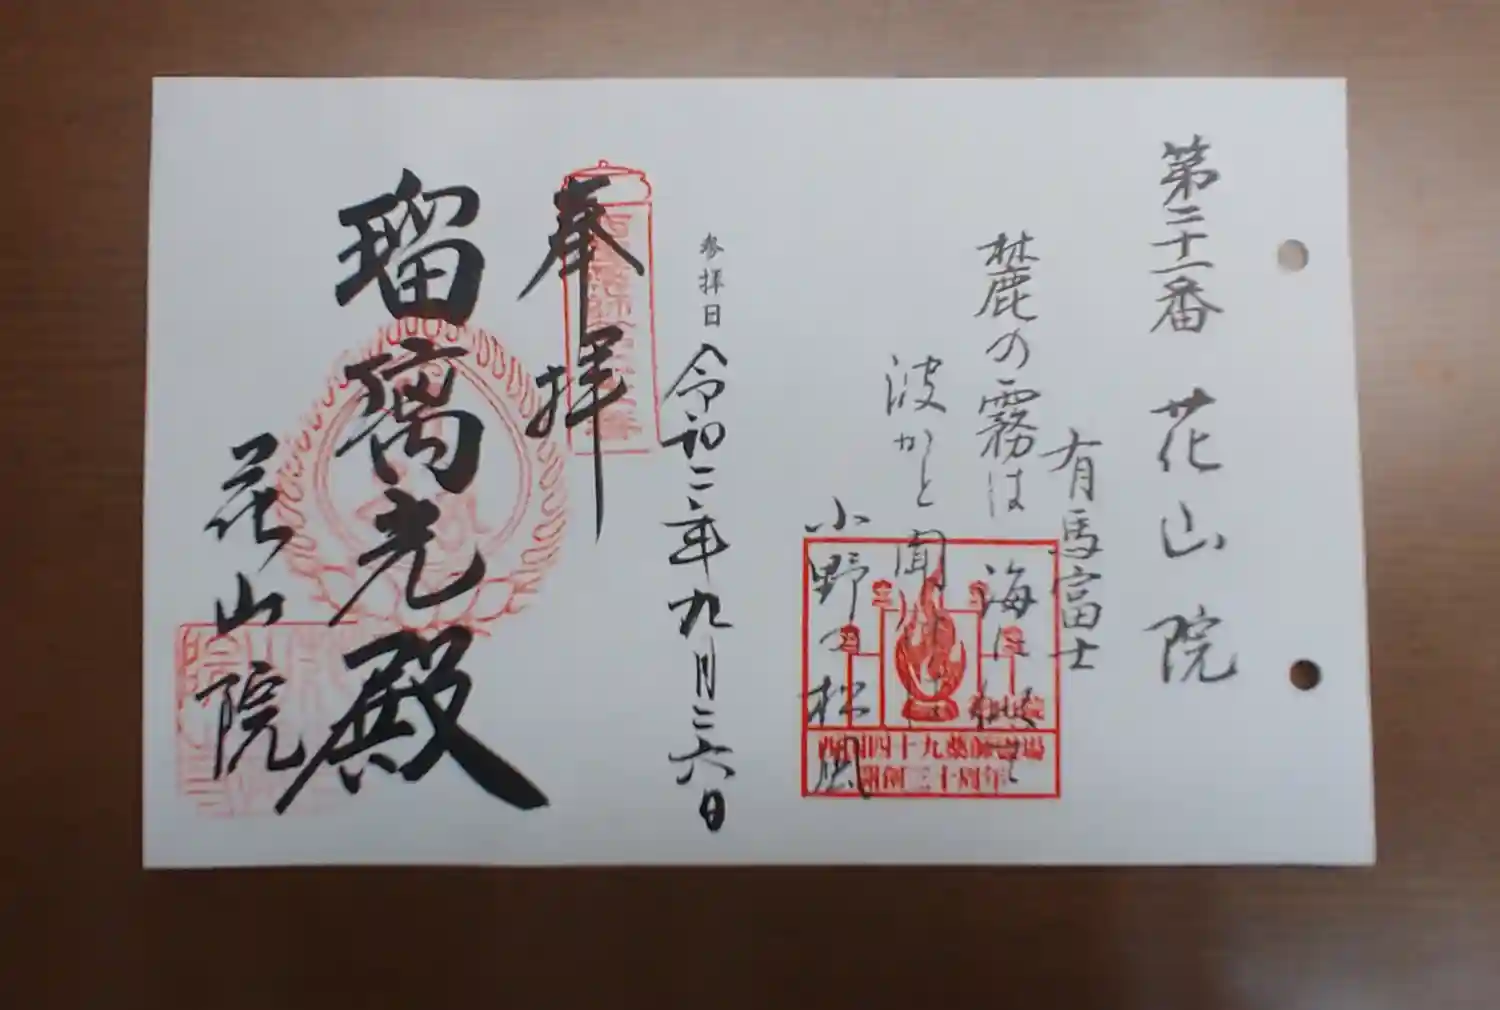 第二十一番 花山院
有馬富士
麓の霧は 海に似て
波かと聞けば
小野の松風
西国四十九薬師霊場
開創三十周年
参拝日
令和二年九月二六日
奉拝
瑠璃光殿
花山院